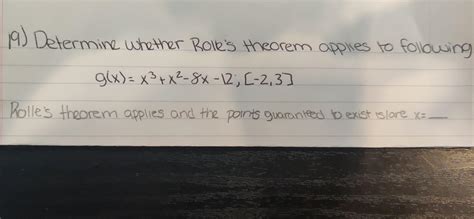 19.) Determine whether Rolle's theorem applies to following
g(x) = x³ + x² - 8x - 12; [-2,3]
Rolle's theorem applies and the points guaranteed to exist is/are x= __